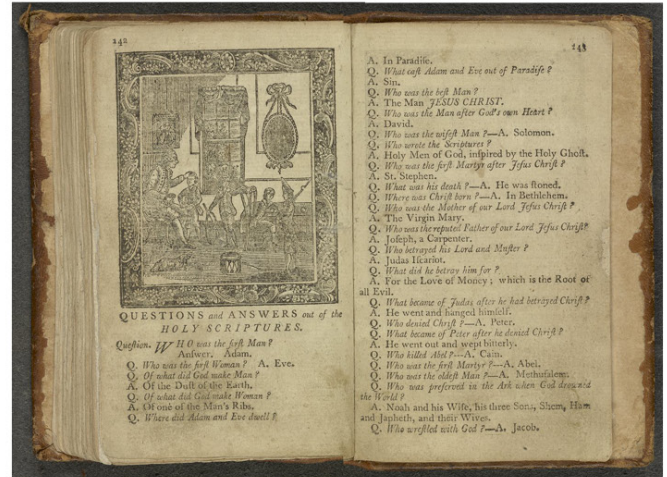 242
QUESTIONS and ANSWERS out of the
HOLY SCRIPTURES.
Question. WHO was the first Man?
Answer. Adam.
Q. Who was the first Woman? A. Eve.
Q. Of what did God make Man?
A. Of the Dust of the Earth.
Q. Of what did God make Woman?
A. Of one of the Man's Ribs.
Q. Where did Adam and Eve dwell?
143
A. In Paradise.
Q. What cast Adam and Eve out of Paradise?
A. Sin.
Q. Who was the best Man?
A. The Man JESUS CHRIST.
Q. Who was the Man after God's own Heart?
A. David.
Q. Who was the wisest Man?—A. Solomon.
Q. Who wrote the Scriptures?
A. Holy Men of God, inspired by the Holy Ghost.
Q. Who was the first Martyr after Jesus Christ?
A. St. Stephen.
Q. What was his death?—A. He was stoned.
Q. Where was Christ born?—A. In Bethlehem.
Q. Who was the Mother of our Lord Jesus Christ?
A. The Virgin Mary.
Q. Who was the reputed Father of our Lord Jesus Christ?
A. Joseph, a Carpenter.
Q. Who betrayed his Lord and Master?
A. Judas Iscariot.
Q. What did he betray him for?
A. For the Love of Money; which is the Root of
all Evil.
Q. What became of Judas after he had betrayed Christ?
A. He went and hanged himself.
Q. Who denied Christ?—A. Peter.
Q. What became of Peter after he denied Christ?
A. He went out and wept bitterly.
Q. Who killed Abel?—A. Cain.
Q. Who was the first Martyr?—A. Abel.
Q. Who was the oldest Man?—A. Methusalem.
Q. Who was preserved in the Ark when God drowned
the World?
A. Noah and his Wife, his three Sons, Shem, Ham
and Japheth, and their Wives.
Q. Who wrestled with God?—A. Jacob.